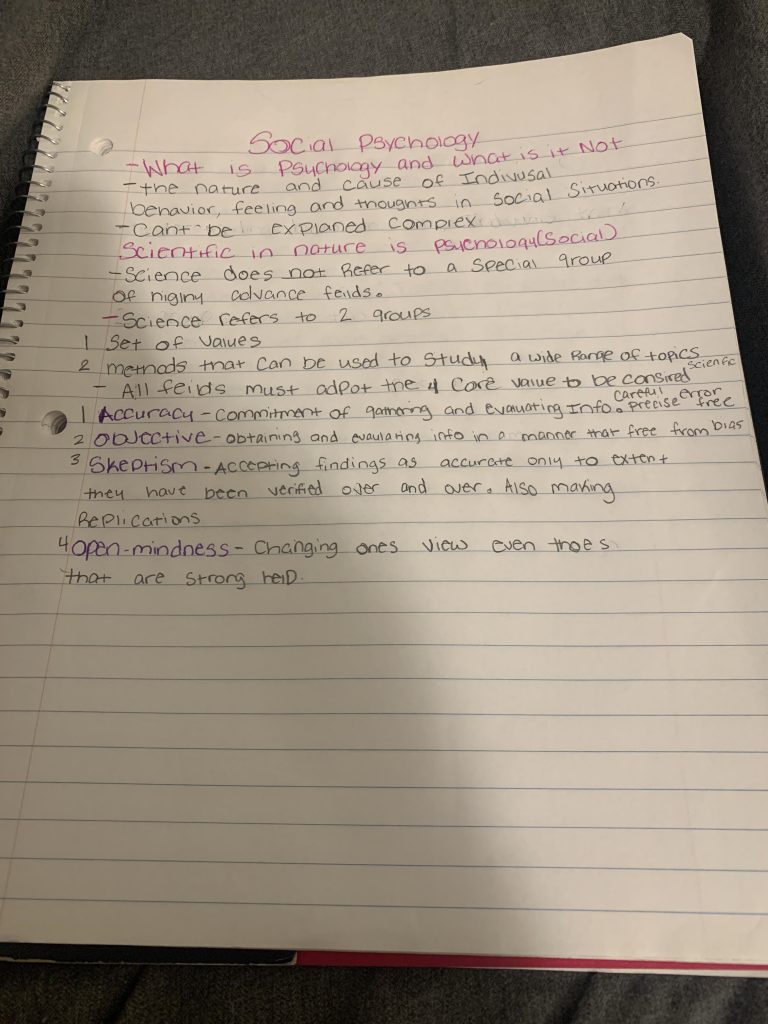 Social Psychology
- What is Psychology and What is it Not
- the nature and cause of Indivusal
behavior, feeling and thoughts in Social Situations.
- Can't be explaned Complex
Scientific in nature is psychology(Social)
- Science does not Refer to a Special group
of highly advance feilds.
- Science refers to 2 groups
1 Set of Values
2 methods that can be used to Study a wide Range of topics
- All feilds must adpot the 4 Core value to be consired scienfic
1 Accuracy - Commitment of gathering and evanuating Info. Careful precise error free
2 Objective - obtaining and evaulating info in a manner that free from bias
3 Skeptism - Accepting findings as accurate only to extent
they have been verified over and over. Also making
Replications
4 Open-mindness - Changing ones view even thoes
that are Strong held.